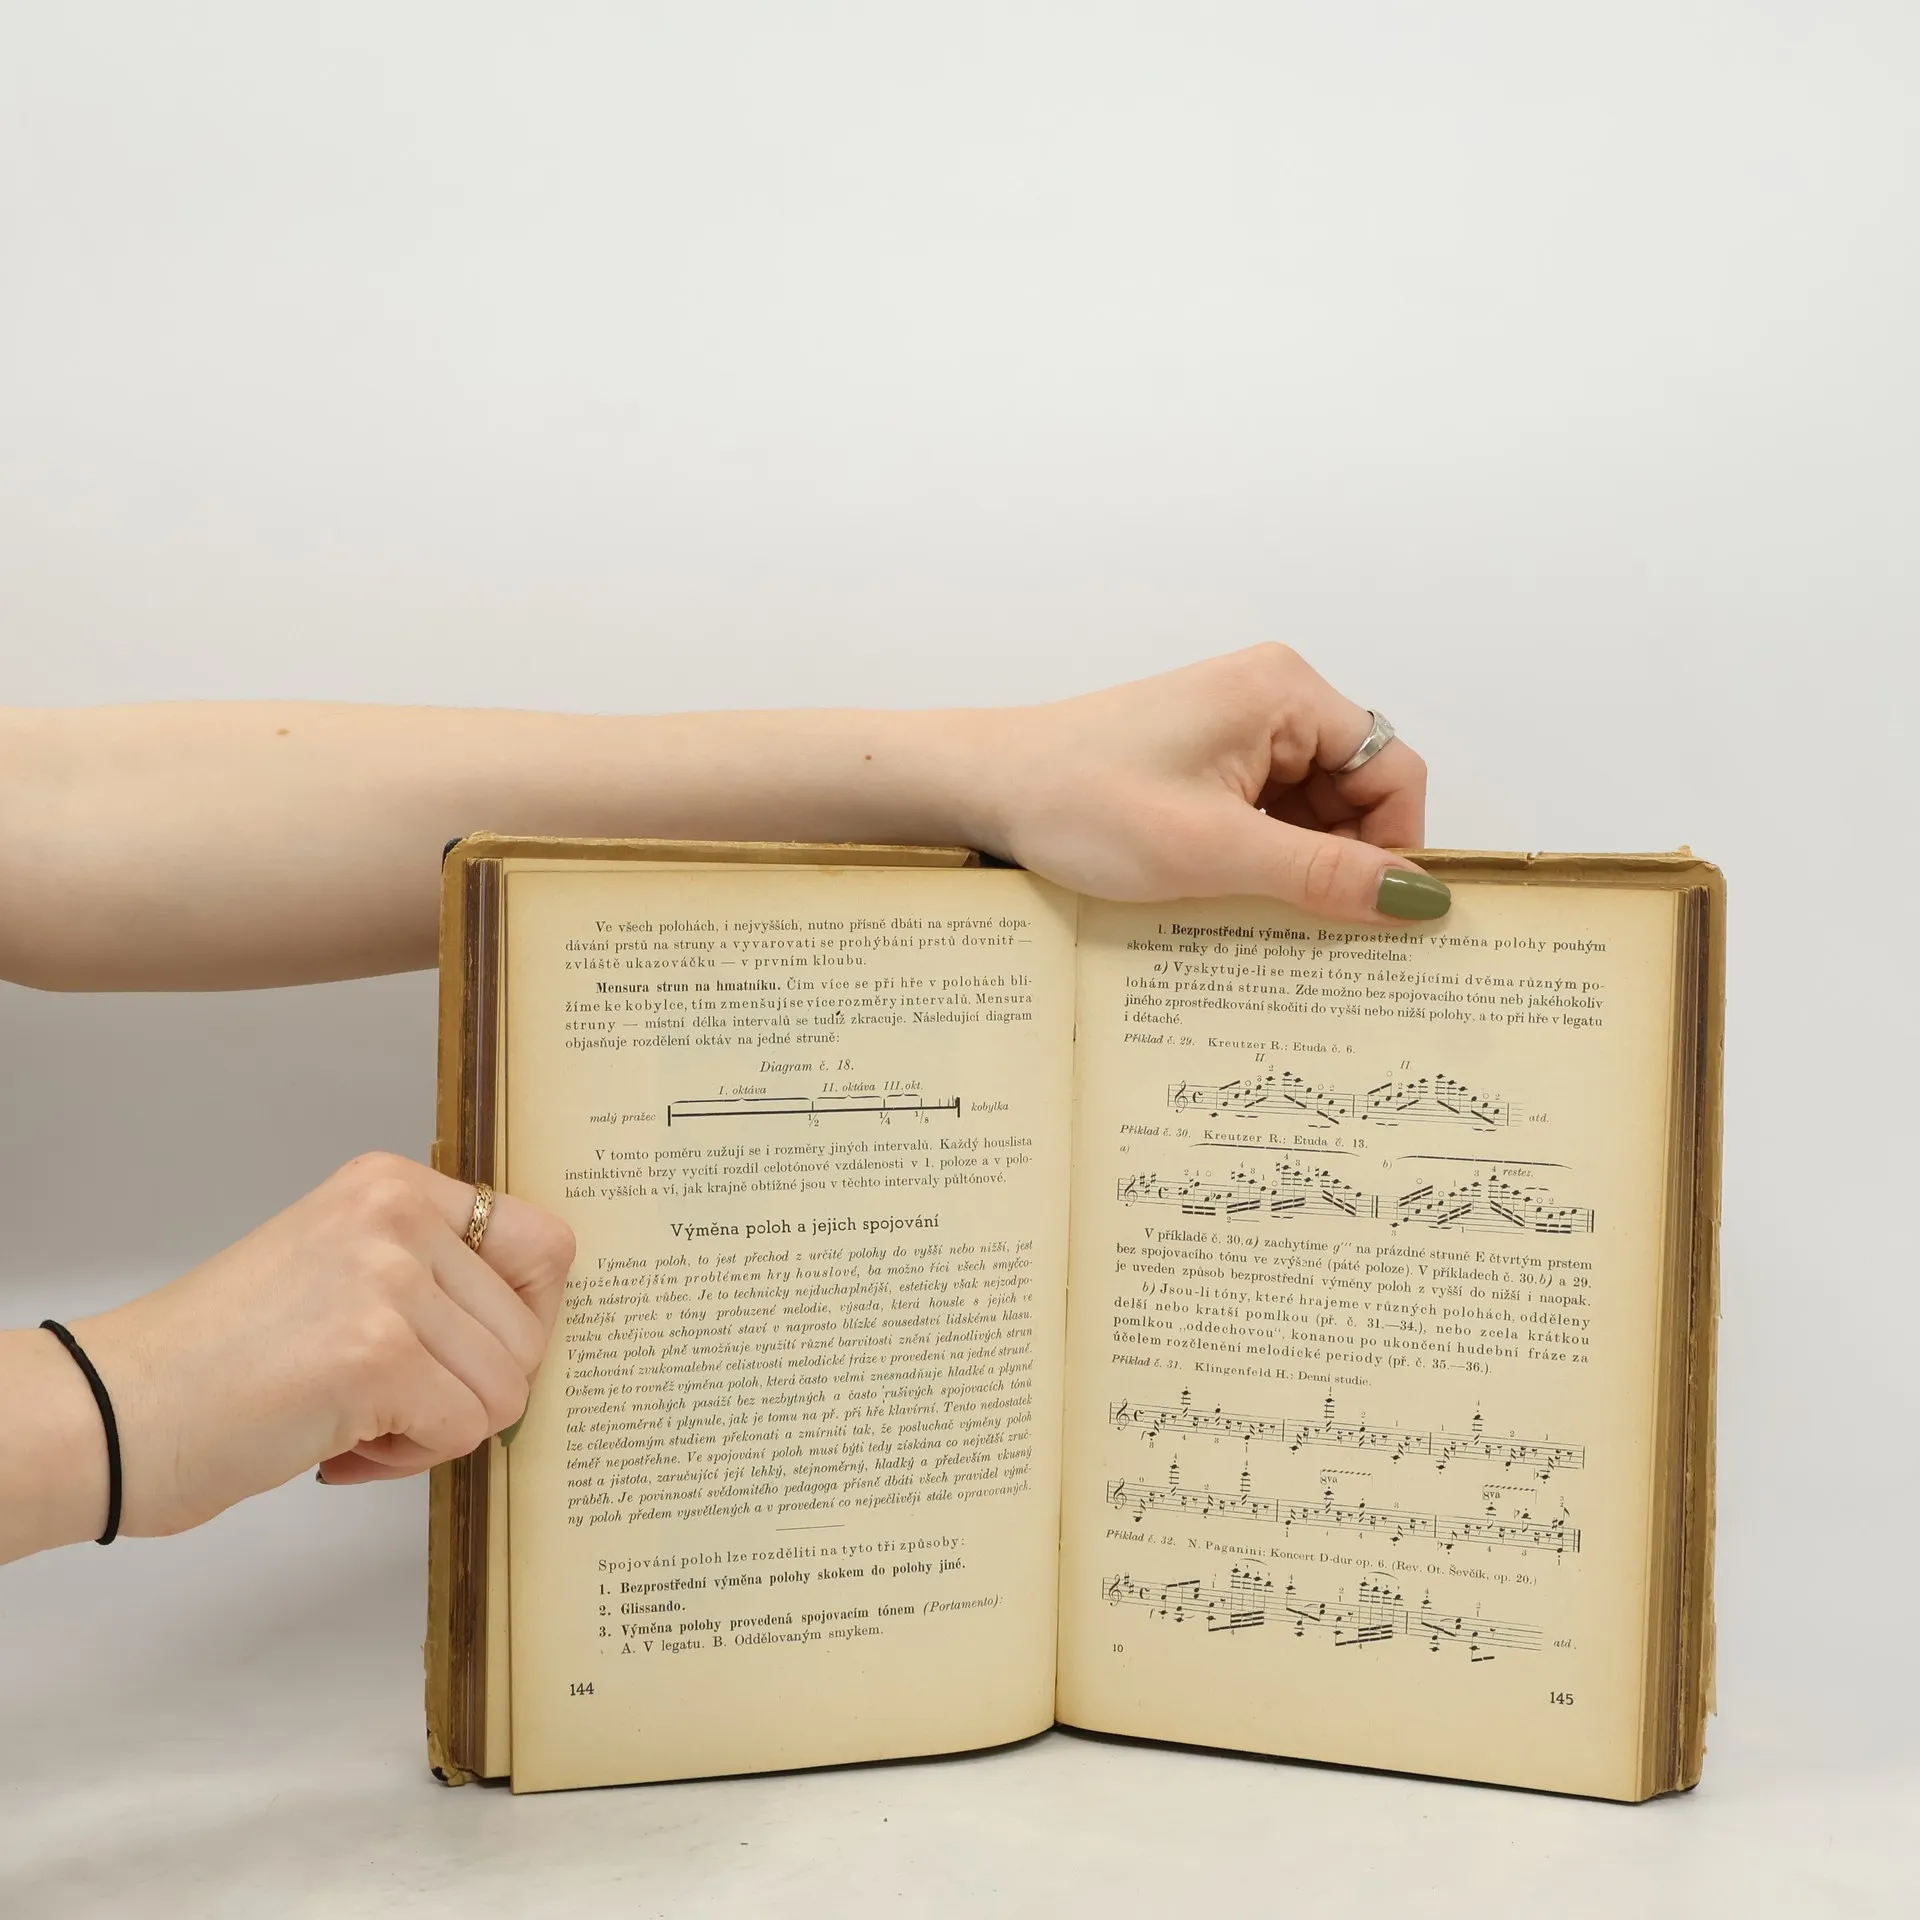 Ve všech polohách, i nejvyšších, nutno přísně dbáti na správné dopa-
dávání prstů na struny a vyvarovati se prohýbání prstů dovnitř —
zvláště ukazováčku — v prvním kloubu.
Mensura strun na hmatníku. Čím více se při hře v polohách blí-
žíme ke kobylce, tím zmenšují se více rozměry intervalů. Mensura
struny — místní délka intervalů se tudíž zkracuje. Následující diagram
objasňuje rozdělení oktáv na jedné struně:
Diagram č. 18.
I. oktáva II. oktáva III. okt.
malý pražec kobylka
1/2 1/4 1/8
V tomto poměru zužují se i rozměry jiných intervalů. Každý houslista
instinktivně brzy vycítí rozdíl celotónové vzdálenosti v 1. poloze a v polo-
hách vyšších a ví, jak krajně obtížné jsou v těchto intervaly půltónové.
Výměna poloh a jejich spojování
Výměna poloh, to jest přechod z určité polohy do vyšší nebo nižší, jest
nejožehavějším problémem hry houslové, ba možno říci všech smyčco-
vých nástrojů vůbec. Je to technicky nejduchaplnější, esteticky však nejzodpo-
vědnější prvek v tóny probuzené melodie, výsada, která housle s jejich ve
zvuku chvějivou schopností staví v naprosto blízké sousedství lidskému hlasu.
Výměna poloh plně umožňuje využití různé barvitosti znění jednotlivých strun
i zachování zvukomalebné celistvosti melodické fráze v provedení na jedné struně.
Ovšem je to rovněž výměna poloh, která často velmi znesnadňuje hladké a plynné
provedení mnohých pasáží bez nezbytných a často rušivých spojovacích tónů
tak stejnoměrně i plynule, jak je tomu na př. při hře klavírní. Tento nedostatek
lze cílevědomým studiem překonati a zmírniti tak, že posluchač výměny poloh
téměř nepostřehne. Ve spojování poloh musí býti tedy získána co největší zruč-
nost a jistota, zaručující její lehký, stejnoměrný, hladký a především vkusný
průběh. Je povinností svědomitého pedagoga přísně dbáti všech pravidel výmě-
ny poloh předem vysvětlených a v provedení co nejpečlivěji stále opravovaných.
Spojování poloh lze rozděliti na tyto tři způsoby:
1. Bezprostřední výměna polohy skokem do polohy jiné.
2. Glissando.
3. Výměna polohy provedená spojovacím tónem (Portamento):
A. V legatu. B. Oddělovaným smykem.
144
1. Bezprostřední výměna. Bezprostřední výměna polohy pouhým
skokem ruky do jiné polohy je proveditelna:
a) Vyskytuje-li se mezi tóny náležejícími dvěma různým po-
lohám prázdná struna. Zde možno bez spojovacího tónu neb jakéhokoliv
jiného zprostředkování skočiti do vyšší nebo nižší polohy, a to při hře v legatu
i détaché.
Příklad č. 29. Kreutzer R.: Etuda č. 6.
II II
atd.
Příklad č. 30. Kreutzer R.: Etuda č. 13.
a) b) restez.
V příkladě č. 30.a) zachytíme g''' na prázdné struně E čtvrtým prstem
bez spojovacího tónu ve zvýšené (páté poloze). V příkladech č. 30.b) a 29.
je uveden způsob bezprostřední výměny poloh z vyšší do nižší i naopak.
b) Jsou-li tóny, které hrajeme v různých polohách, odděleny
delší nebo kratší pomlkou (př. č. 31.—34.), nebo zcela krátkou
pomlkou „oddechovou“, konanou po ukončení hudební fráze za
účelem rozčlenění melodické periody (př. č. 35.—36.).
Příklad č. 31. Klingenfeld H.: Denní studie.
f
8va 8va
Příklad č. 32. N. Paganini: Koncert D-dur op. 6. (Rev. Ot. Ševčík, op. 20.)
f
atd.
10
145